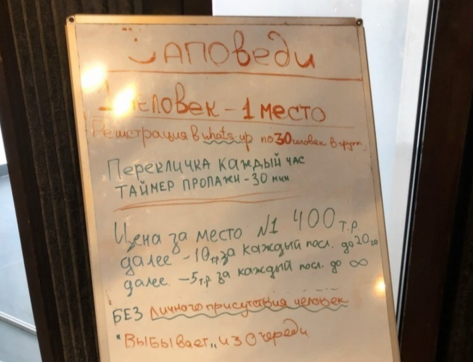 Заповеди
1 человек - 1 место
Регистрация в whats up по 30 человек в групп.
Перекличка каждый час
Таймер пропажи - 30 мин
Цена за место №1 400 т.р.
далее -10 т.р за каждый посл. до 20го
далее -5 т.р за каждый посл. до ∞
БЕЗ личного присутствия человек
"выбывает" из очереди